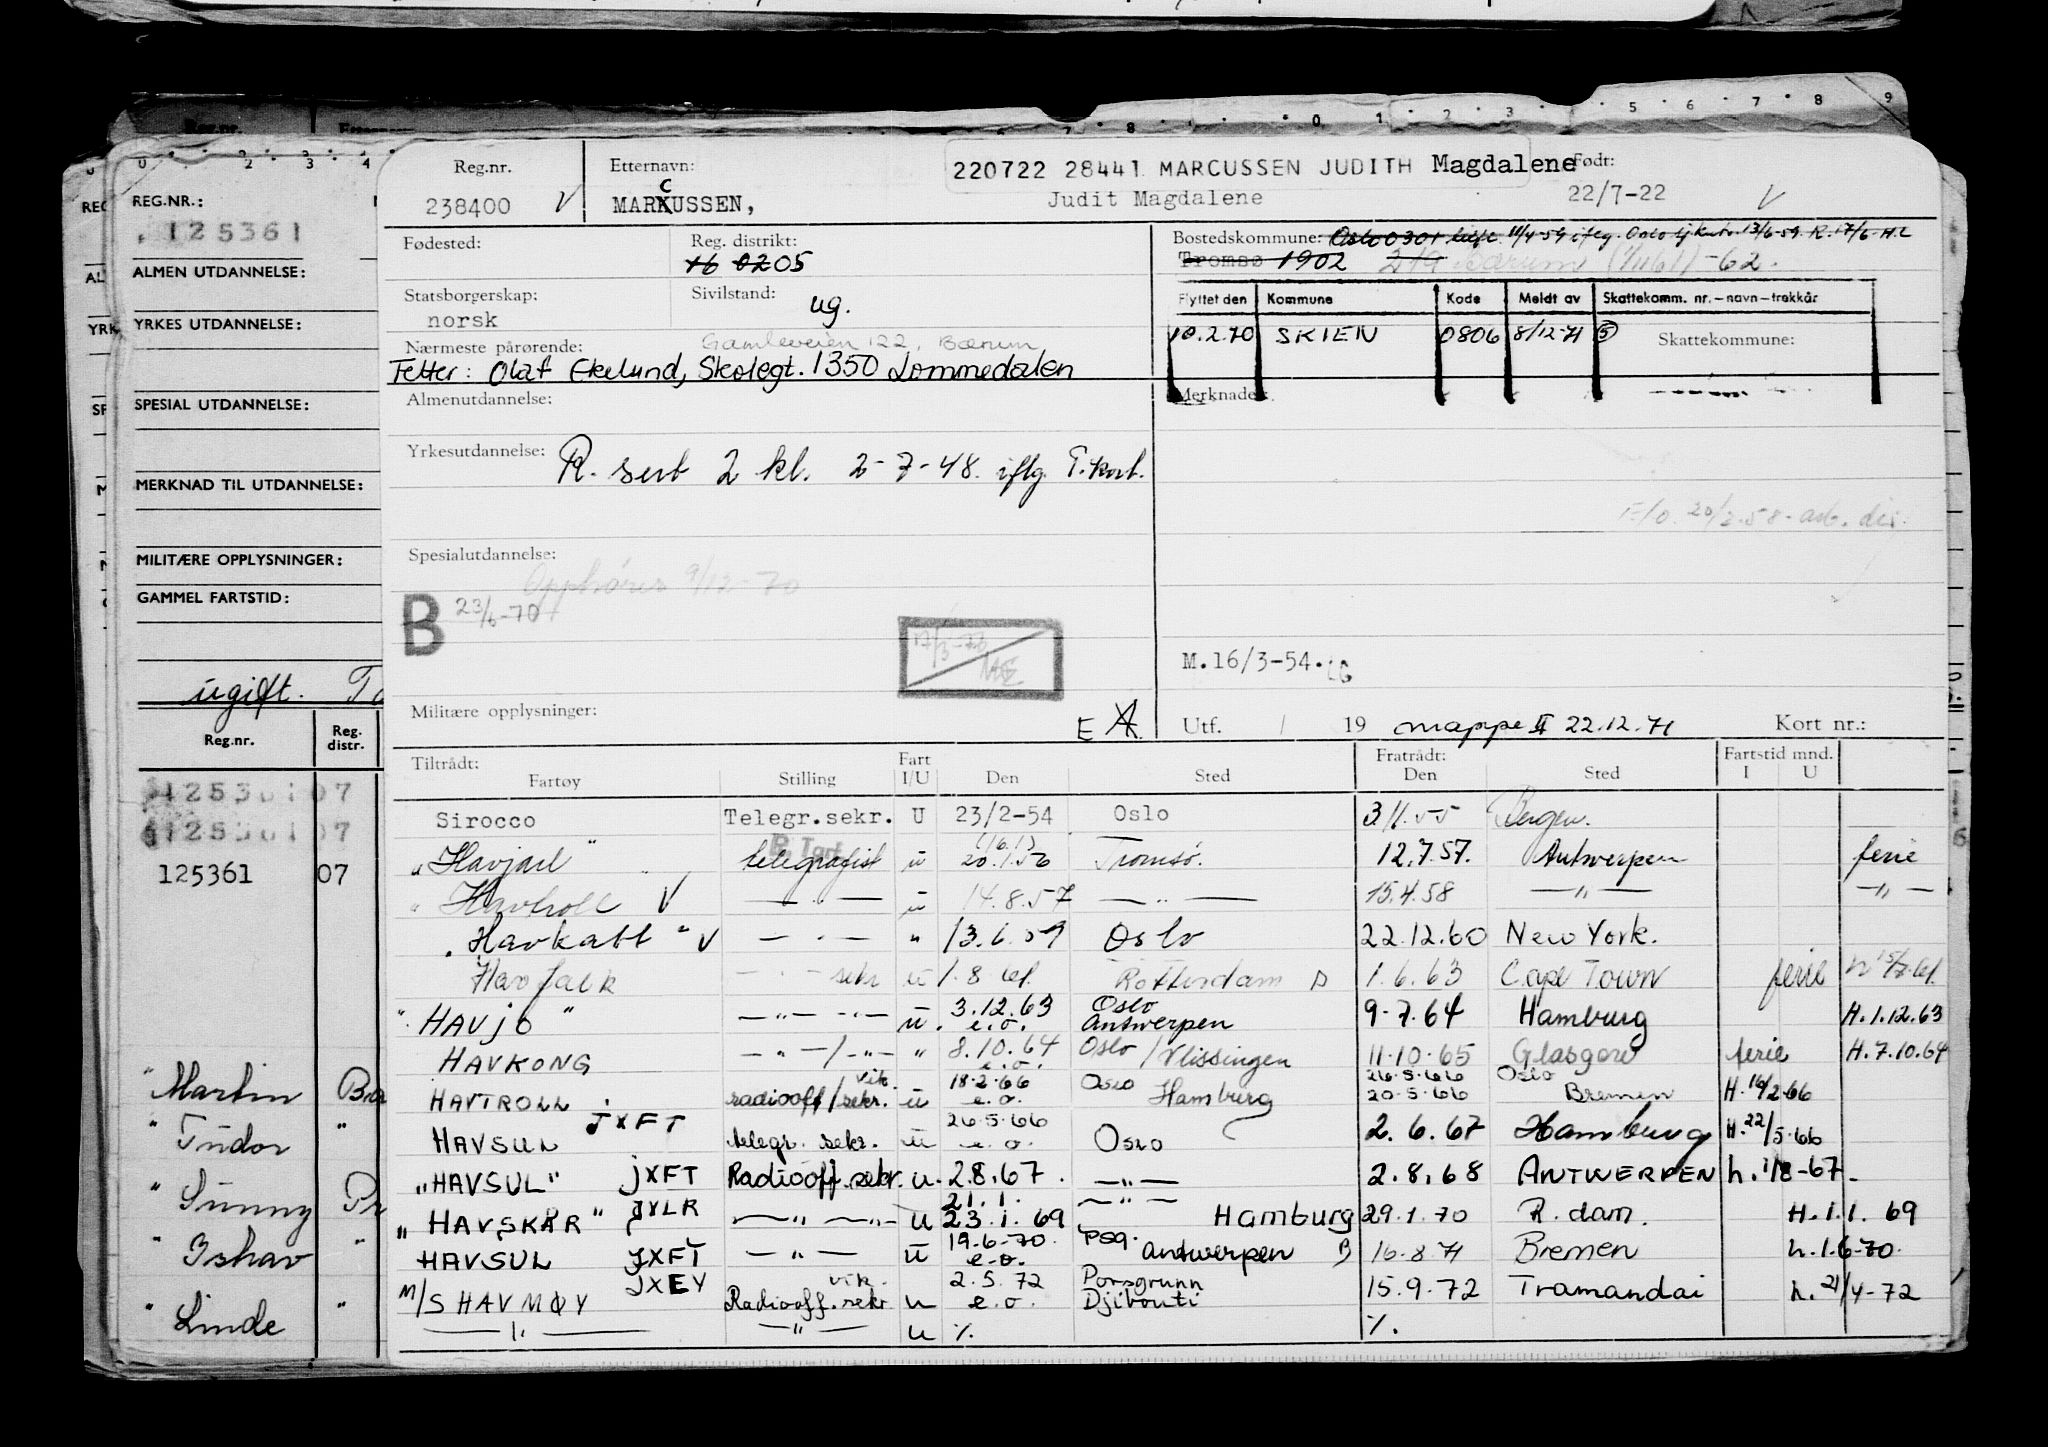 Reg.nr. Etternavn: 220722 28441 MARCUSSEN JUDITH Magdalene Født:
238400 V MARKUSSEN, C Judit Magdalene 22/7-22 V
Fødested: Reg. distrikt: 16 02 05
Bostedskommune: Oslo 0301
Tromsø 1902 219 Bærum -62.
Statsborgerskap: norsk Sivilstand: ug.
Flyttet den Kommune Kode Meldt av Skattekomm. nr.-navn-trekkår
10.2.70 SKIEN 0806 8/12-71 5 Skattekommune:
Nærmeste pårørende: Gamleveien 122, Bærum
Fetter: Olaf Ekelund, Skolegt. 1350 Lommedalen
Almenutdannelse: Merknader:
Yrkesutdannelse: R. sert 2 kl. 2-7-48. iflg. T.kort.
Spesialutdannelse:
Opphører 9/12-70
B 23/6-70
M.16/3-54.
Militære opplysninger: E A Utf. / 19 mappe II 22.12.71 Kort nr.:
Tiltrådt: Fart Fratrådt: Fartstid mnd.
Fartøy Stilling I/U Den Sted Den Sted I U
Sirocco Telegr.sekr. U 23/2-54 Oslo 3.11.55 Bergen.
"Havjarl" telegrafist u (16.1) 20.1.56 Tromsø. 12.7.57. Antwerpen ferie
" Havtroll V — " — u 14.8.57 — " — 15.4.58 — " — — " —
"Havkatt" V — " — " 13.6.59 Oslo 22.12.60 New York.
Havfalk — " — sekr u 1.8.61. Rotterdam B 1.6.63 Cape Town ferie
"HAVJO" — " — " — u. 3.12.63 e.o. Oslo Antwerpen 9-7.64 Hamburg H.1.12.63
HAVKONG — " — / — " — " 8.10.64 e.o. Oslo / Vlissingen 11.10.65 Glasgow ferie H.7.10.64
HAVTROLL radiooff/sekr. vik. u 18.2.66 e.o. Oslo Hamburg 26.5.66 20.5.66 Oslo Bremen H.16/2.66
HAVSUL JXFT telegr. sekr. u 26.5.66 e.o. Oslo 2.6.67 Hamburg H.22/5.66
"HAVSUL" JXFT Radiooff.sekr. u. 2.8.67. — " — 2.8.68 ANTWERPEN h.1/8-67.
"HAVSKÅR" JXLR — " — " — u 21.1. 23.1.69 — " — Hamburg 29.1.70 R.dam. H.1.1.69
HAVSUL JXFT — " — u 19.6.70. e.o. Psg. Antwerpen B 16.8.71 Bremen h.1.6-70.
M/S HAVMØY JXEY Radiooff.sekr vik. u 2.5.72 e.o. Porsgrunn Djibouti 15.9.72 Tramandai h.21/4-72
— " — — " — u %. %.
REG.NR.:
125361
ALMEN UTDANNELSE:
YRKES UTDANNELSE:
SPESIAL UTDANNELSE:
MERKNAD TIL UTDANNELSE:
MILITÆRE OPPLYSNINGER:
GAMMEL FARTSTID:
ugift.
Reg.nr. Reg. distr.
125361 07
125361 07
125361 07
" Martin
" Tudor "
" Sunny
" Ishav "
" Linde "